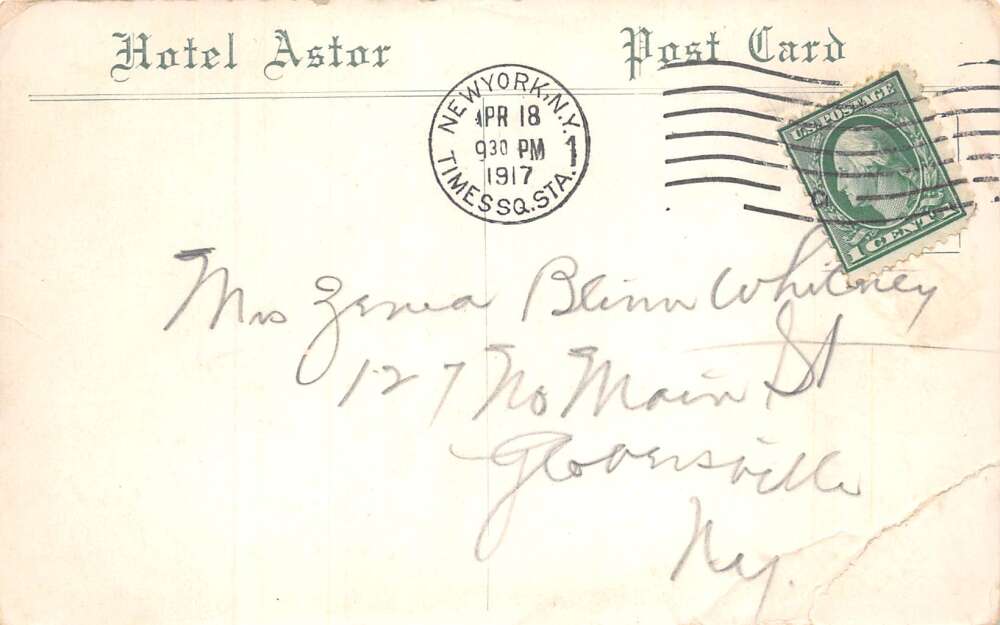 Hotel Astor Post Card
NEW YORK, N.Y. 1
APR 18
9 30 PM
1917
TIMES SQ. STA.
U.S. POSTAGE
1 CENT 1
Mrs Zenea Blinn Whitney
127 No Main St
Gloversville
Ny.